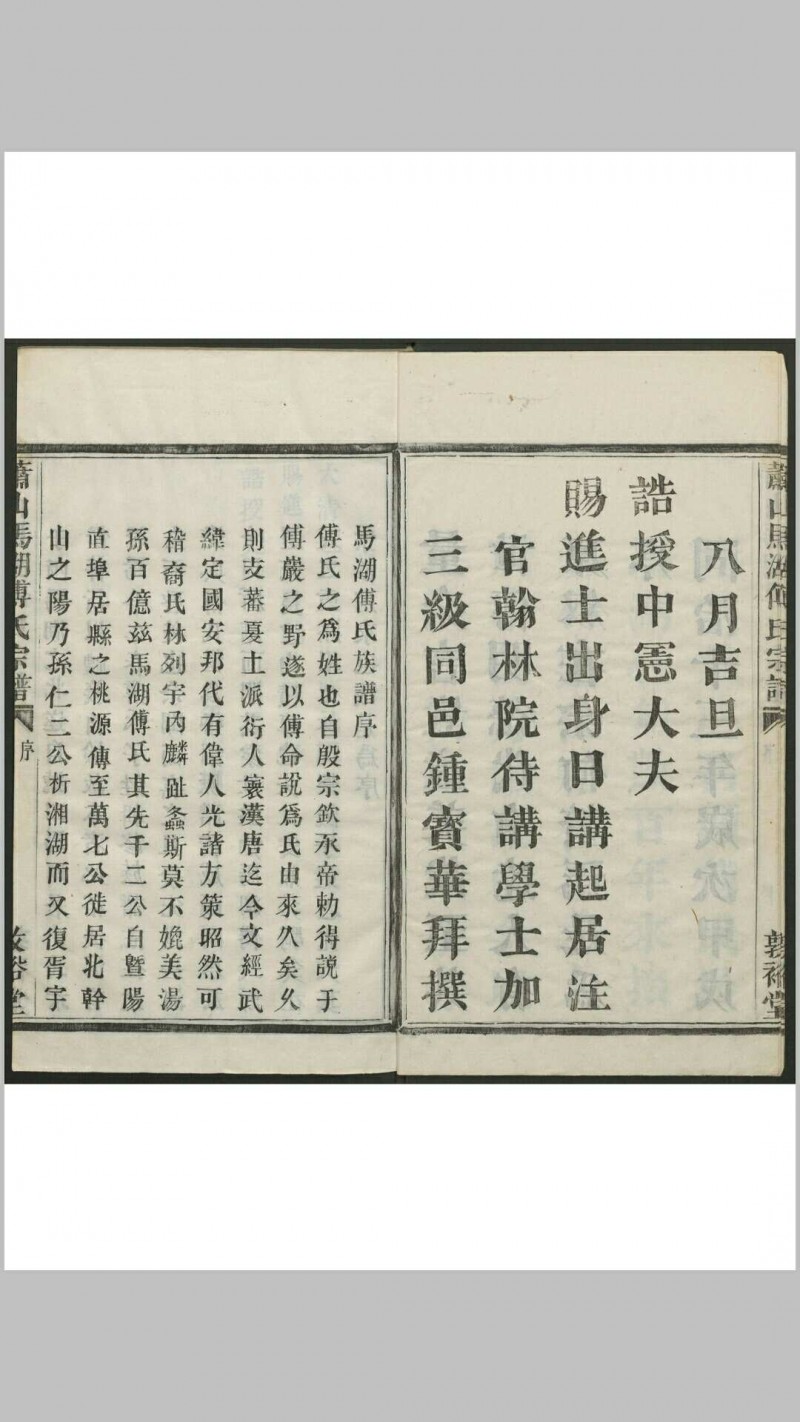 八月吉旦
誥授中憲大夫
賜進士出身日講起居注
官翰林院侍講學士加
三級同邑鍾寶華拜撰
馬湖傅氏族譜序
傅氏之為姓也自殷宗欽承帝勅得説于
傅巖之野遂以傅命説爲氏由來久矣久
則支蕃夏土派衍人寰漢唐迄今文經武
緯定國安邦代有偉人光諸方策昭然可
稽裔氏林列宇內麟趾螽斯莫不媲美湯
孫百億兹馬湖傅氏其先千二公自暨陽
直埠居縣之桃源傳至萬七公徙居北幹
山之陽乃孫仁二公析湘湖而又復胥宇
蕭山馬湖傅氏宗譜
序